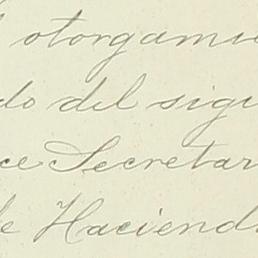 otorgamie
do del sigu
ce Secretar
de Haciend